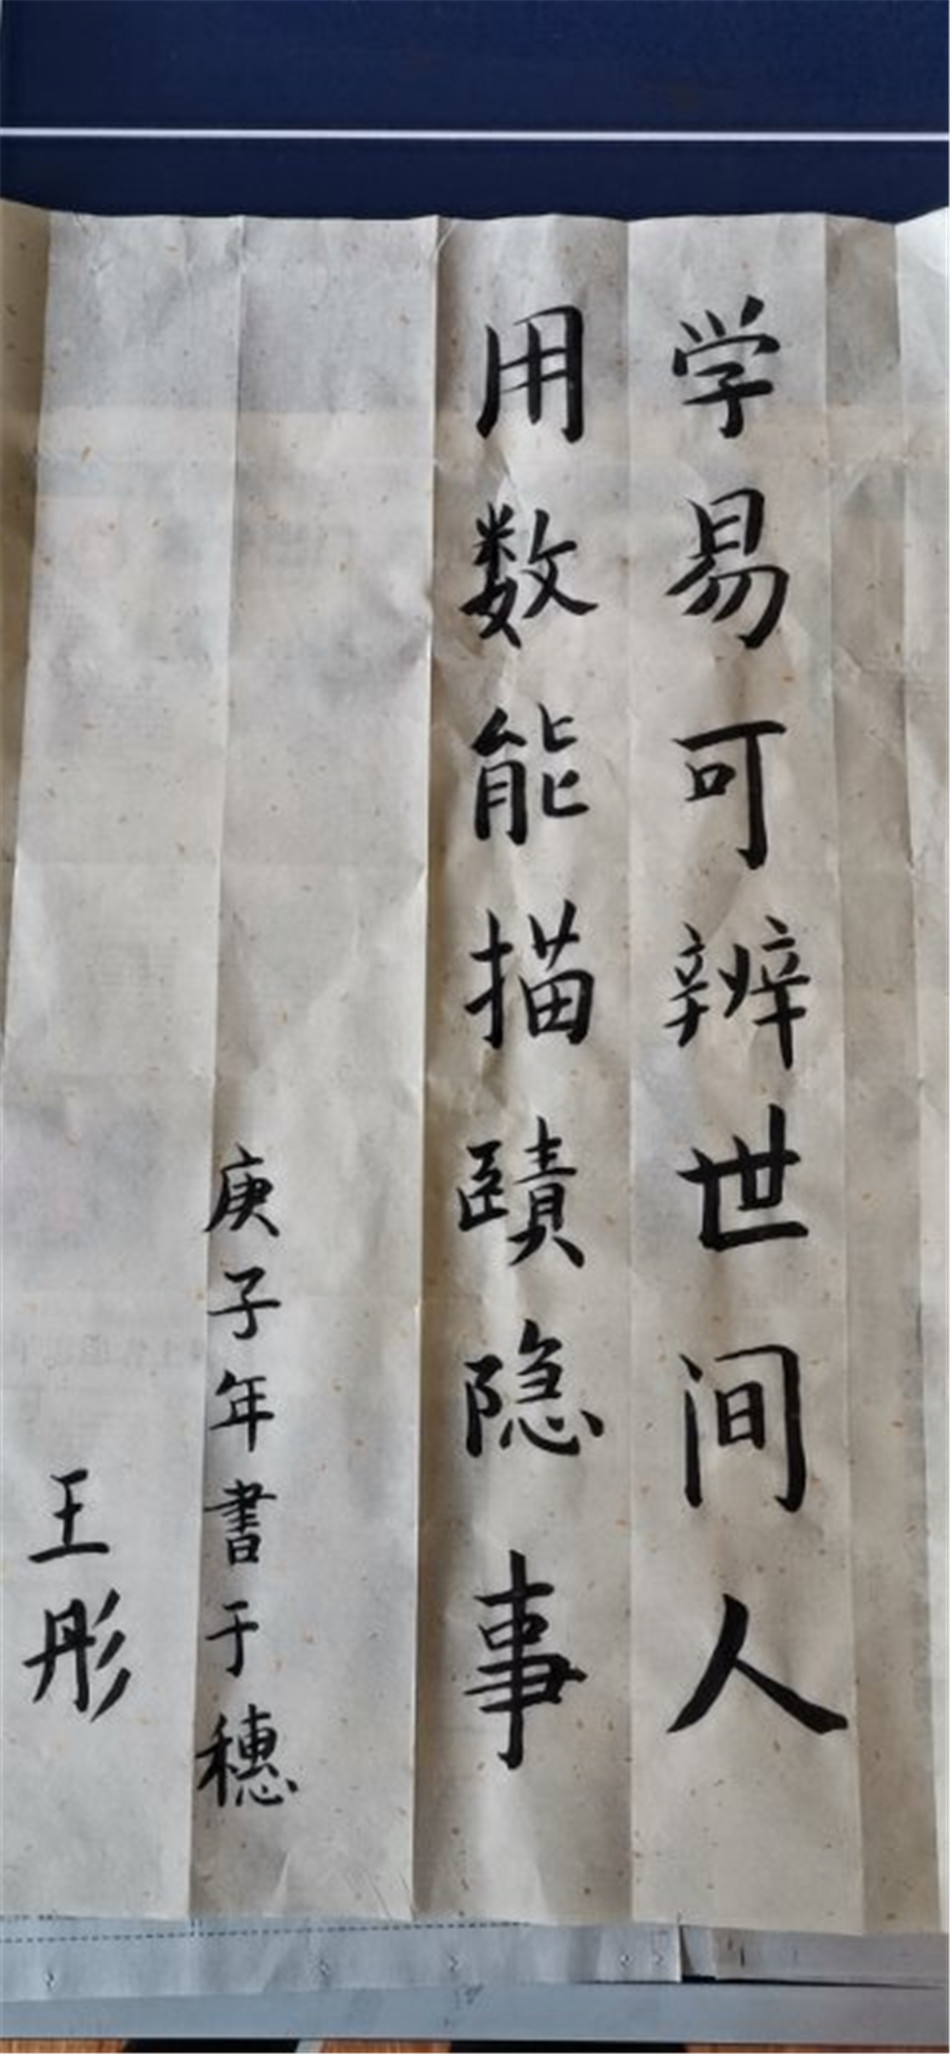 学易可辨世间人
用数能描賾隐事
庚子年書于穗
王彤